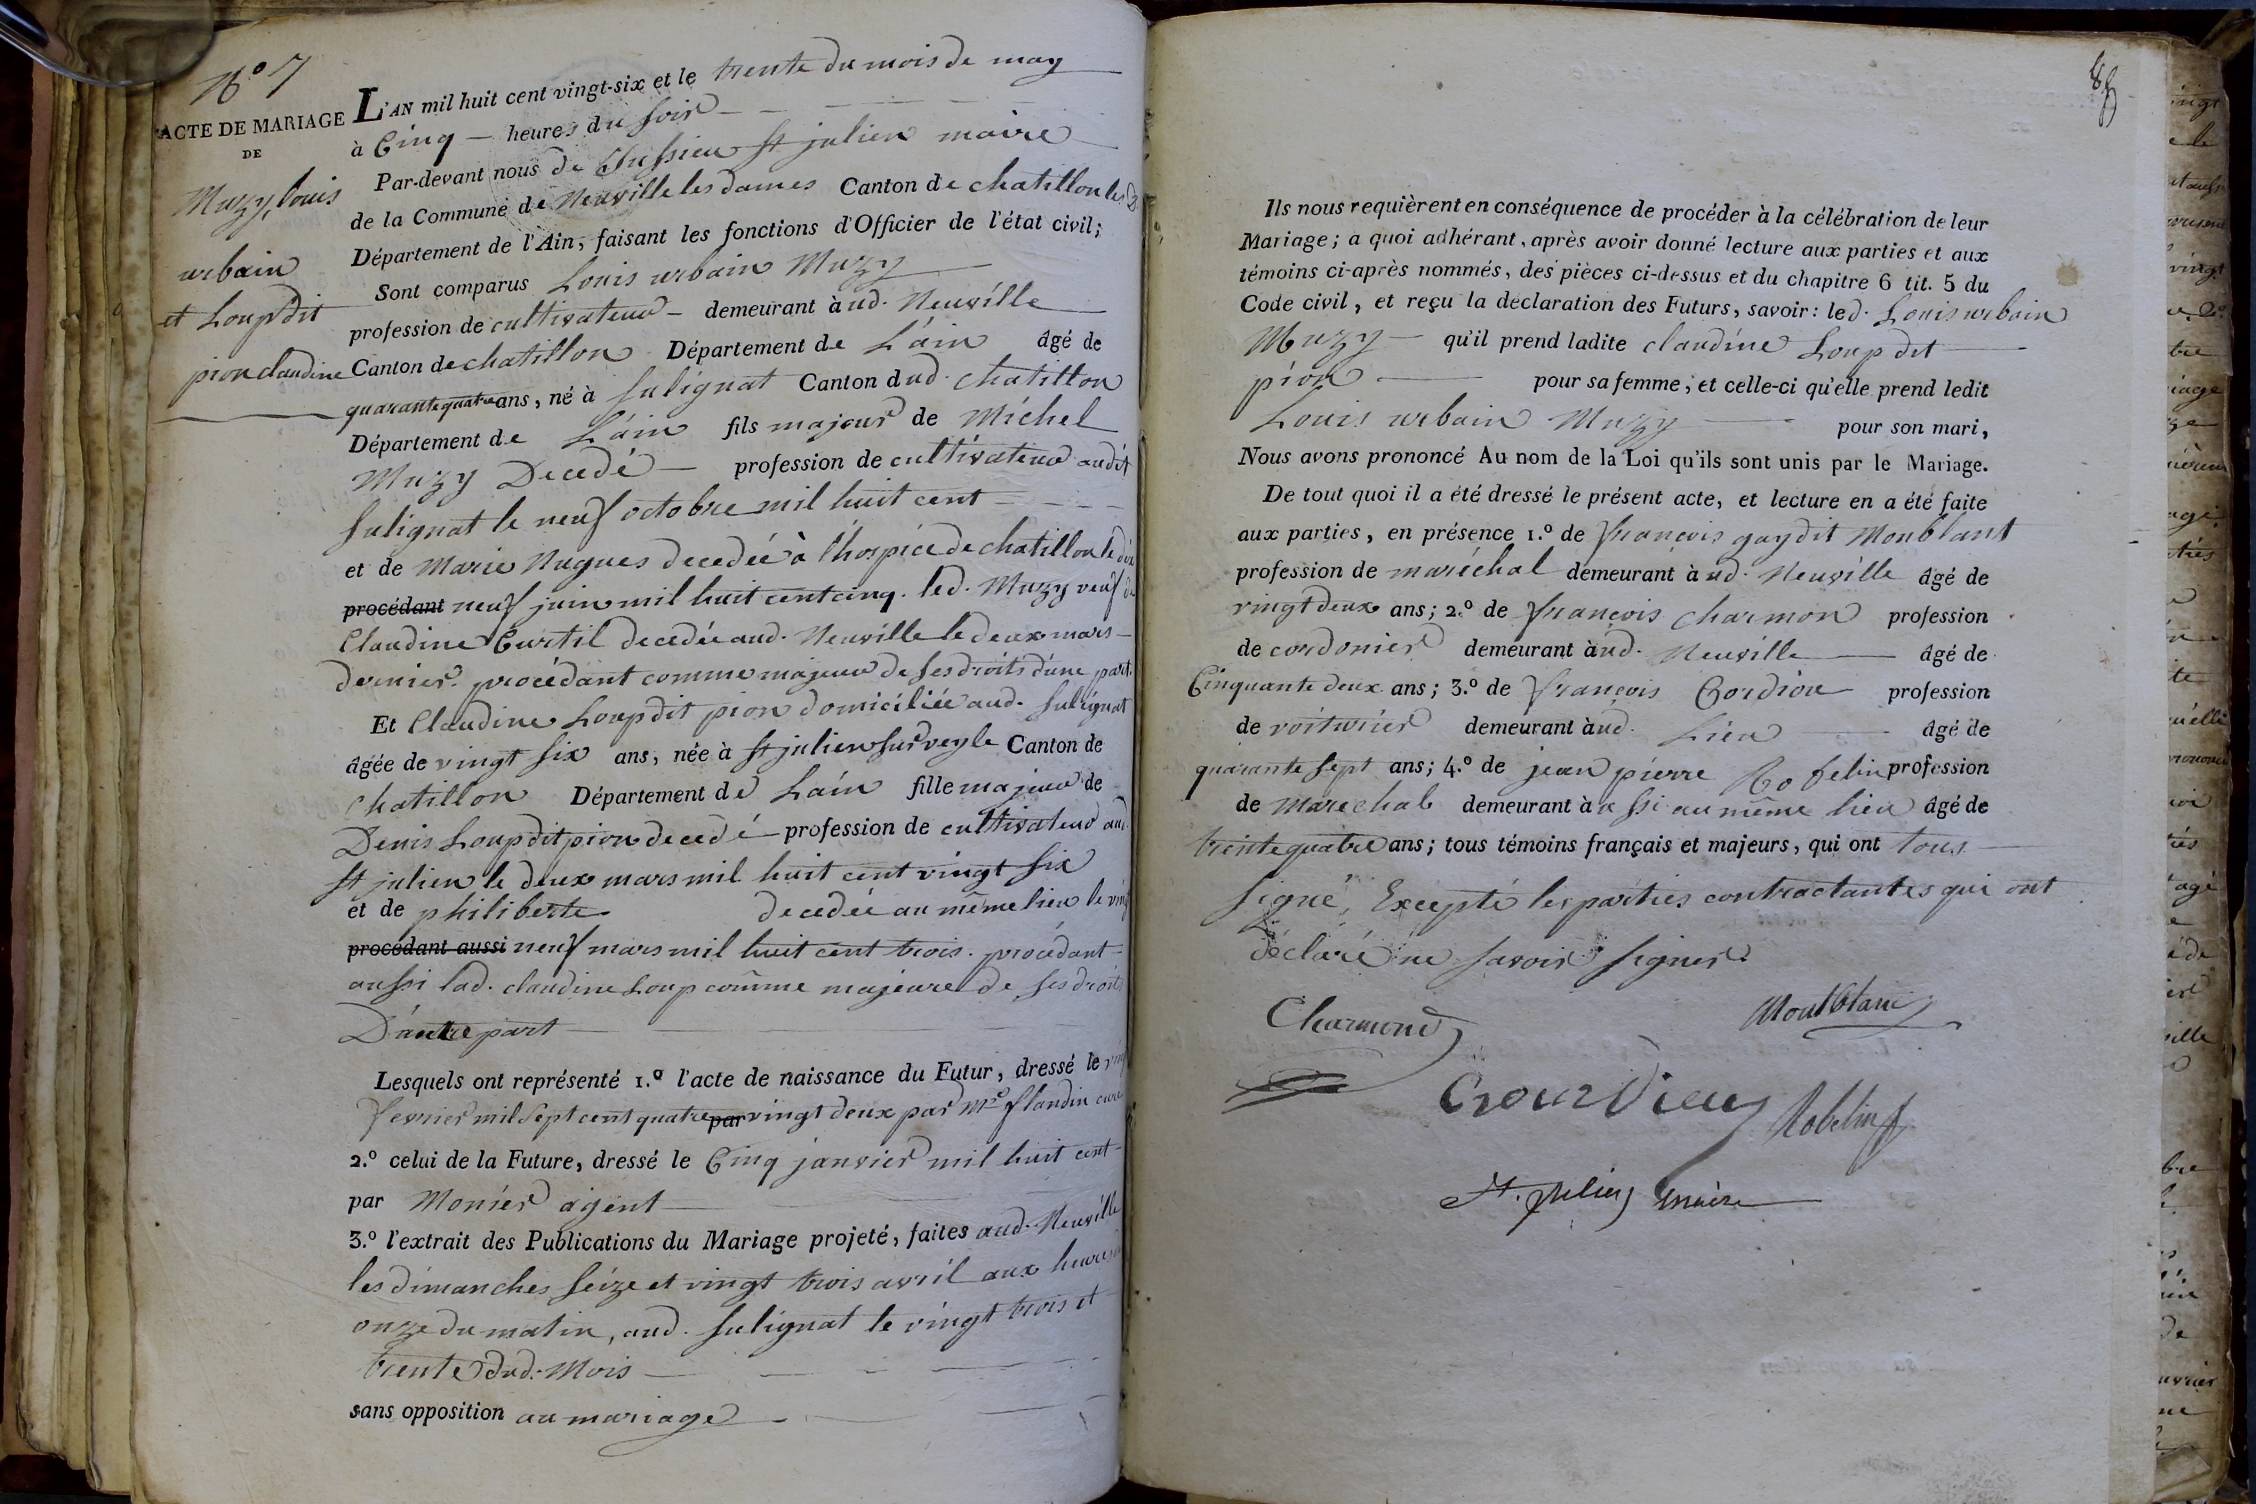 N° 7
ACTE DE MARIAGE
DE
Muzy, Louis
urbain
et Loup dit
pion claudine
L'AN mil huit cent vingt-six et le trente du mois de may
à Cinq heures du soir
Par-devant nous de St julien maire
de la Commune de Neuville les dames Canton de chatillon les D
Département de l'Ain, faisant les fonctions d'Officier de l'état civil;
Sont comparus Louis urbain Muzy
profession de cultivateur demeurant à ud. Neuville
Canton de chatillon Département de L'ain âgé de
quarante quatre ans, né à Sulignat Canton dud. chatillon
Département de L'ain fils majeur de Michel
Muzy Decedé profession de cultivateur audit
Sulignat le neuf octobre mil huit cent
et de Marie Nugues decedée à l'hospice de chatillon le dix
procédant neuf juin mil huit cent cinq. led. Muzy veuf de
Claudine Curtil decedée aud. Neuville le deux mars
dernier. procédant comme majeur de ses droits d'une part.
Et Claudine Loup dit pion domiciliée aud. Sulignat
âgée de vingt six ans, née à St julien sur veyle Canton de
chatillon Département de L'ain fille majeure de
Denis Loup dit pion decedé profession de cultivateur aud.
St julien le deux mars mil huit cent vingt six
et de philiberte decedée au même lieu le vingt
procédant aussi neuf mars mil huit cent trois. procédant
aussi lad. claudine Loup comme majeure de ses droits
D'autre part
Lesquels ont représenté 1.º l'acte de naissance du Futur, dressé le vingt
fevrier mil sept cent quatre par vingt deux par Mre flandin curé
2.º celui de la Future, dressé le Cinq janvier mil huit cent
par Monier agent
3.º l'extrait des Publications du Mariage projeté, faites aud. Neuville
les dimanches seize et vingt trois avril aux heures de
onze du matin, aud. Sulignat le vingt trois et
trente dud. Mois
sans opposition au mariage
Ils nous requièrent en conséquence de procéder à la célébration de leur
Mariage; a quoi adhérant, après avoir donné lecture aux parties et aux
témoins ci-après nommés, des pièces ci-dessus et du chapitre 6 tit. 5 du
Code civil, et reçu la déclaration des Futurs, savoir: led. Louis urbain
Muzy qu'il prend ladite claudine Loup dit
pion pour sa femme, et celle-ci qu'elle prend ledit
Louis urbain Muzy pour son mari,
Nous avons prononcé Au nom de la Loi qu'ils sont unis par le Mariage.
De tout quoi il a été dressé le présent acte, et lecture en a été faite
aux parties, en présence 1.º de françois gay dit Monblant
profession de maréchal demeurant à ud. Neuville âgé de
vingt deux ans; 2.º de françois Charmon profession
de cordonier demeurant à ud. Neuville âgé de
Cinquante deux ans; 3.º de françois Gordion profession
de voiturier demeurant à ud. Lieu âgé de
quarante sept ans; 4.º de jean pierre Robelin profession
de Marechal demeurant à ussi au même lieu âgé de
trente quatre ans; tous témoins français et majeurs, qui ont tous
signé, Excepté les parties contractantes qui ont
déclaré ne savoir signer.
Charmond
Montblanc
Gourdieu
Robelin
St. Julien maire